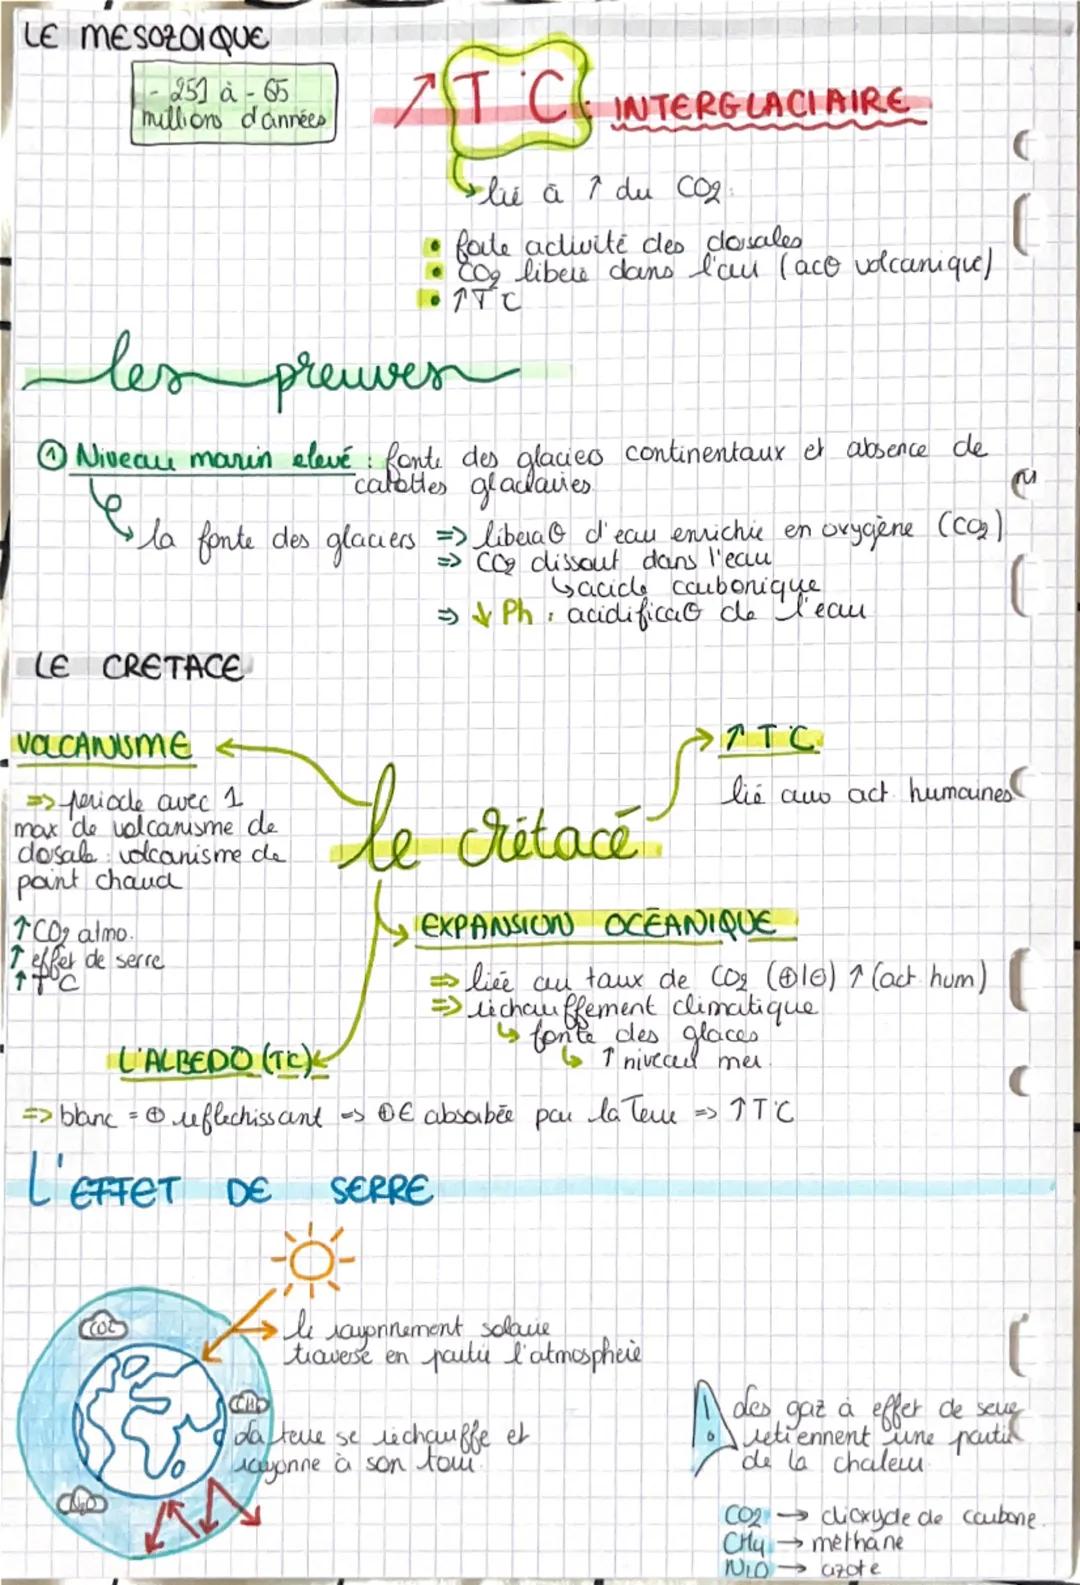 LE MESOZOIQUE
- 251 à - 65
millions d'années
↗ T°C : INTERGLACIAIRE
↳ lié à ↑ du CO2
• forte activité des dorsales
• CO2 libéré dans l'air (act° volcanique)
• ↑T°C
les preuves
① Niveau marin elevé : fonte des glaciers continentaux et absence de
calottes glaciaires
↳ la fonte des glaciers => liberat° d'eau enrichie en oxygène (CO2)
=> CO2 dissout dans l'eau
↳ acide carbonique
=> ↓ Ph : acidificat° de l'eau
LE CRETACE
VOLCANISME
=> periode avec 1
max de volcanisme de
dorsale : volcanisme de
point chaud
↑ CO2 atmo.
↑ effet de serre
↑ T°C
le crétacé
↑ T°C
lié aux act. humaines
EXPANSION OCEANIQUE
=> liée au taux de CO2 (⊕/⊖) ↑ (act. hum)
=> réchauffement climatique
↳ fonte des glaces
↳ ↑ niveau mer.
L'ALBEDO (T°C)
=> blanc = ⊕ reflechissant -> ⊖E absorbée par la Terre => ↑T°C
L'EFFET DE SERRE
le rayonnement solaire
traverse en partie l'atmosphère
CO2
CH4
N2O
la terre se réchauffe et
rayonne à son tour.
! des gaz à effet de serre
retiennent une partie
de la chaleur
CO2 → dioxyde de carbone.
CH4 → méthane
N2O → azote